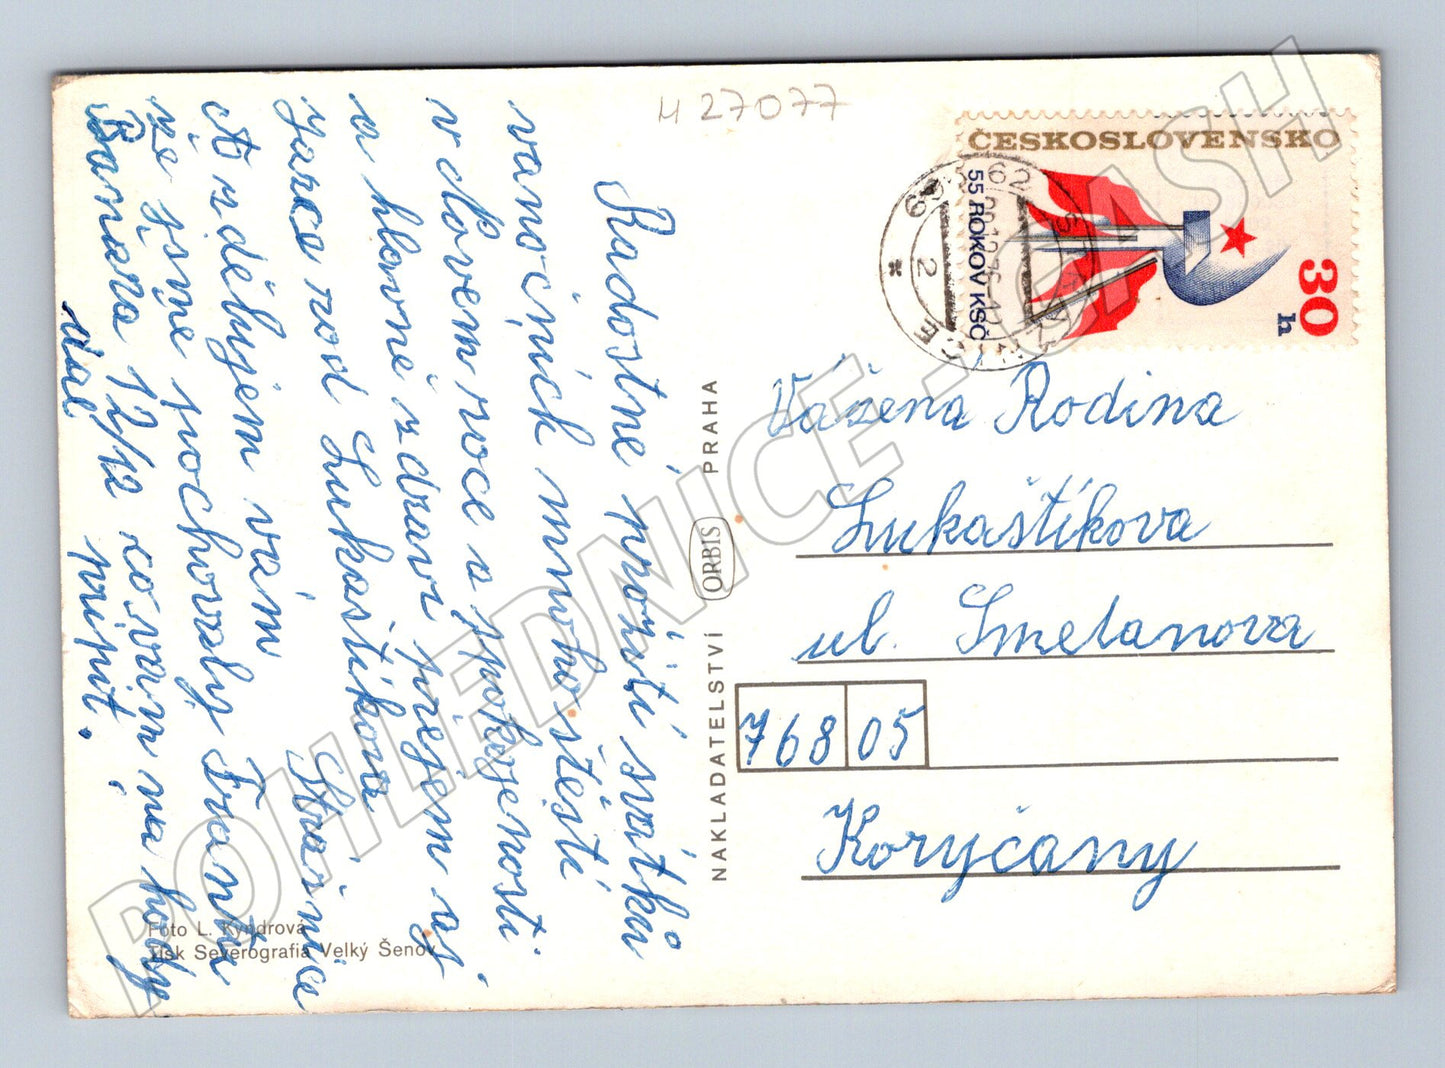 H 27077
ČESKOSLOVENSKO
55 ROKOV KSČ
30
h
Radostné prožití svátků
vánočních mnoho štestí
v Novem roce a spokojenosti.
a hlavně zdraví přejem aj
zarod Lukaštíkova
Stražnice
A zdělujem vám
že sjme pochovaly Frantu
12/12 na hody
vial pripit.
Vážena Rodina
Lukaštíkova
ul. Smetanova
768 05
Koryčany
NAKLADATELSTVÍ ORBIS PRAHA
Foto L. Kyndrová
Tisk Severografia Velký Šenov
POHLEDNICE.GASH